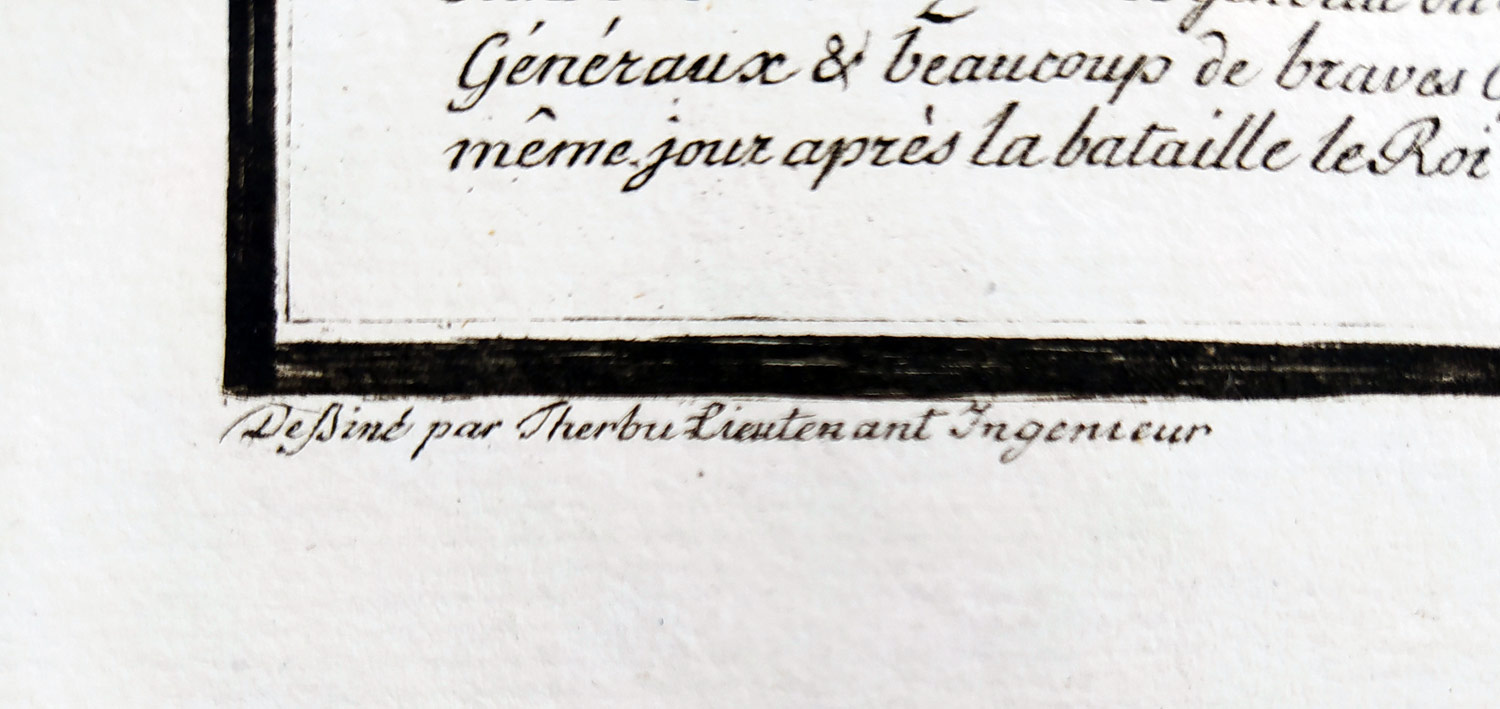 général
Généraux & beaucoup de braves
même jour après la bataille le Roi
Deſsiné par Therbu Lieutenant Ingenieur